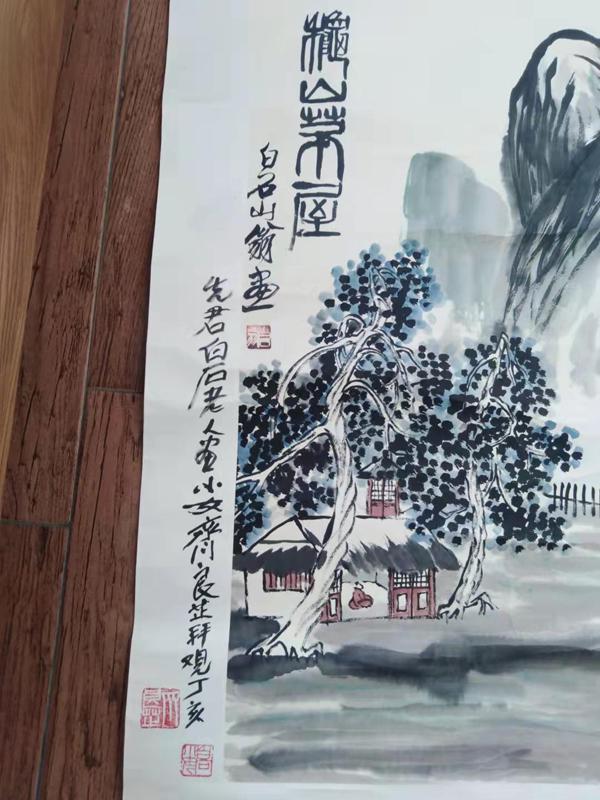 山茅屋
白石山翁畫
先君白石老人画小女齊良芷拜观丁亥